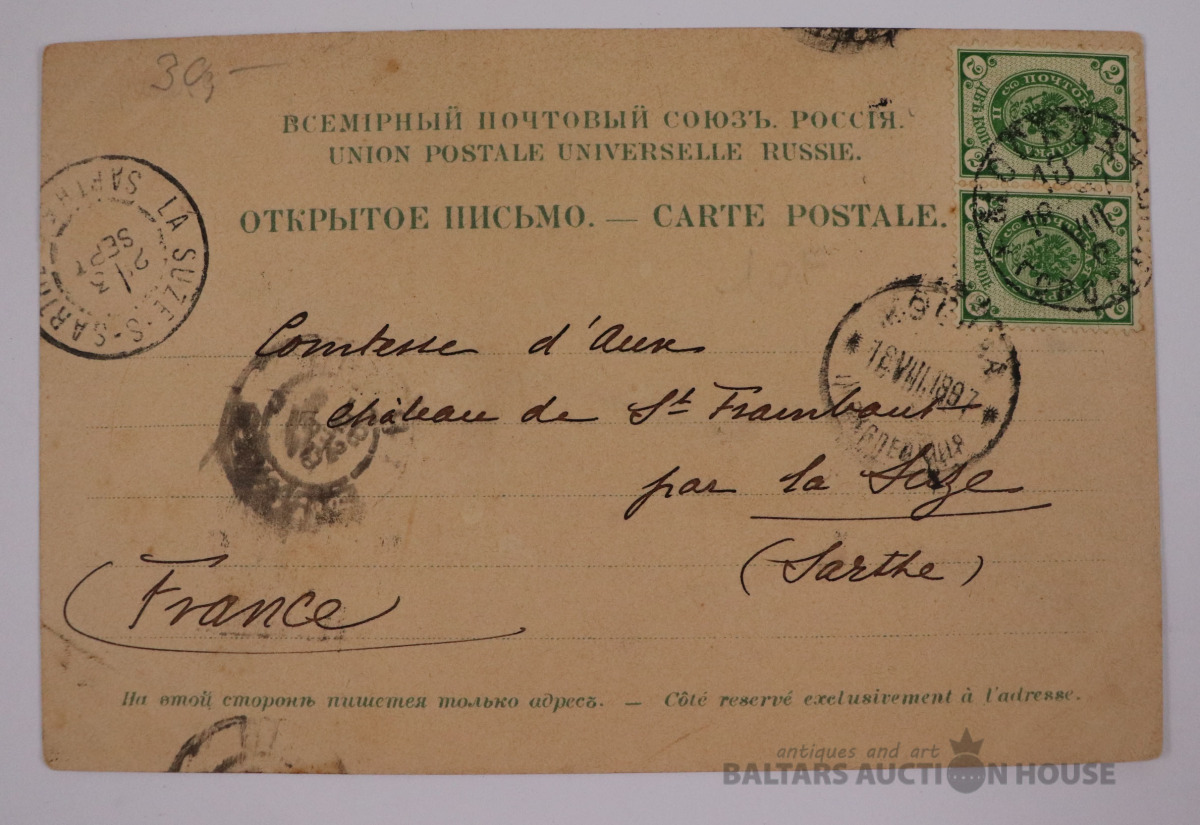 30,-
ВСЕМІРНЫЙ ПОЧТОВЫЙ СОЮЗЪ. РОССІЯ.
UNION POSTALE UNIVERSELLE RUSSIE.
ОТКРЫТОЕ ПИСЬМО. — CARTE POSTALE.
2 2
ПОЧТОВАЯ МАРКА
2 2
LA SUZE-S-SARTHE
SARTHE
21
SEPT
МОСКВА
16 VIII 1897
Comtesse d'Aux
château de St Frambault
par la Suze
(Sarthe)
France
На этой сторонѣ пишется только адресъ. — Côté reservé exclusivement à l'adresse.
antiques and art
BALTARS AUCTION HOUSE